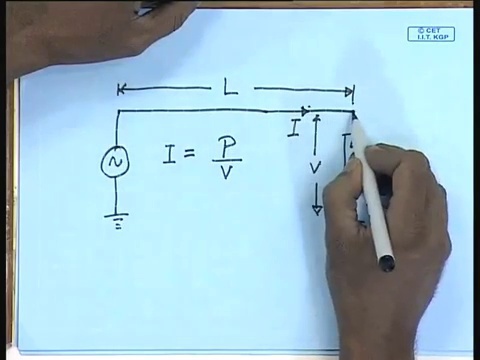 © CET
I.I.T. KGP
L
I
I = P
V
V